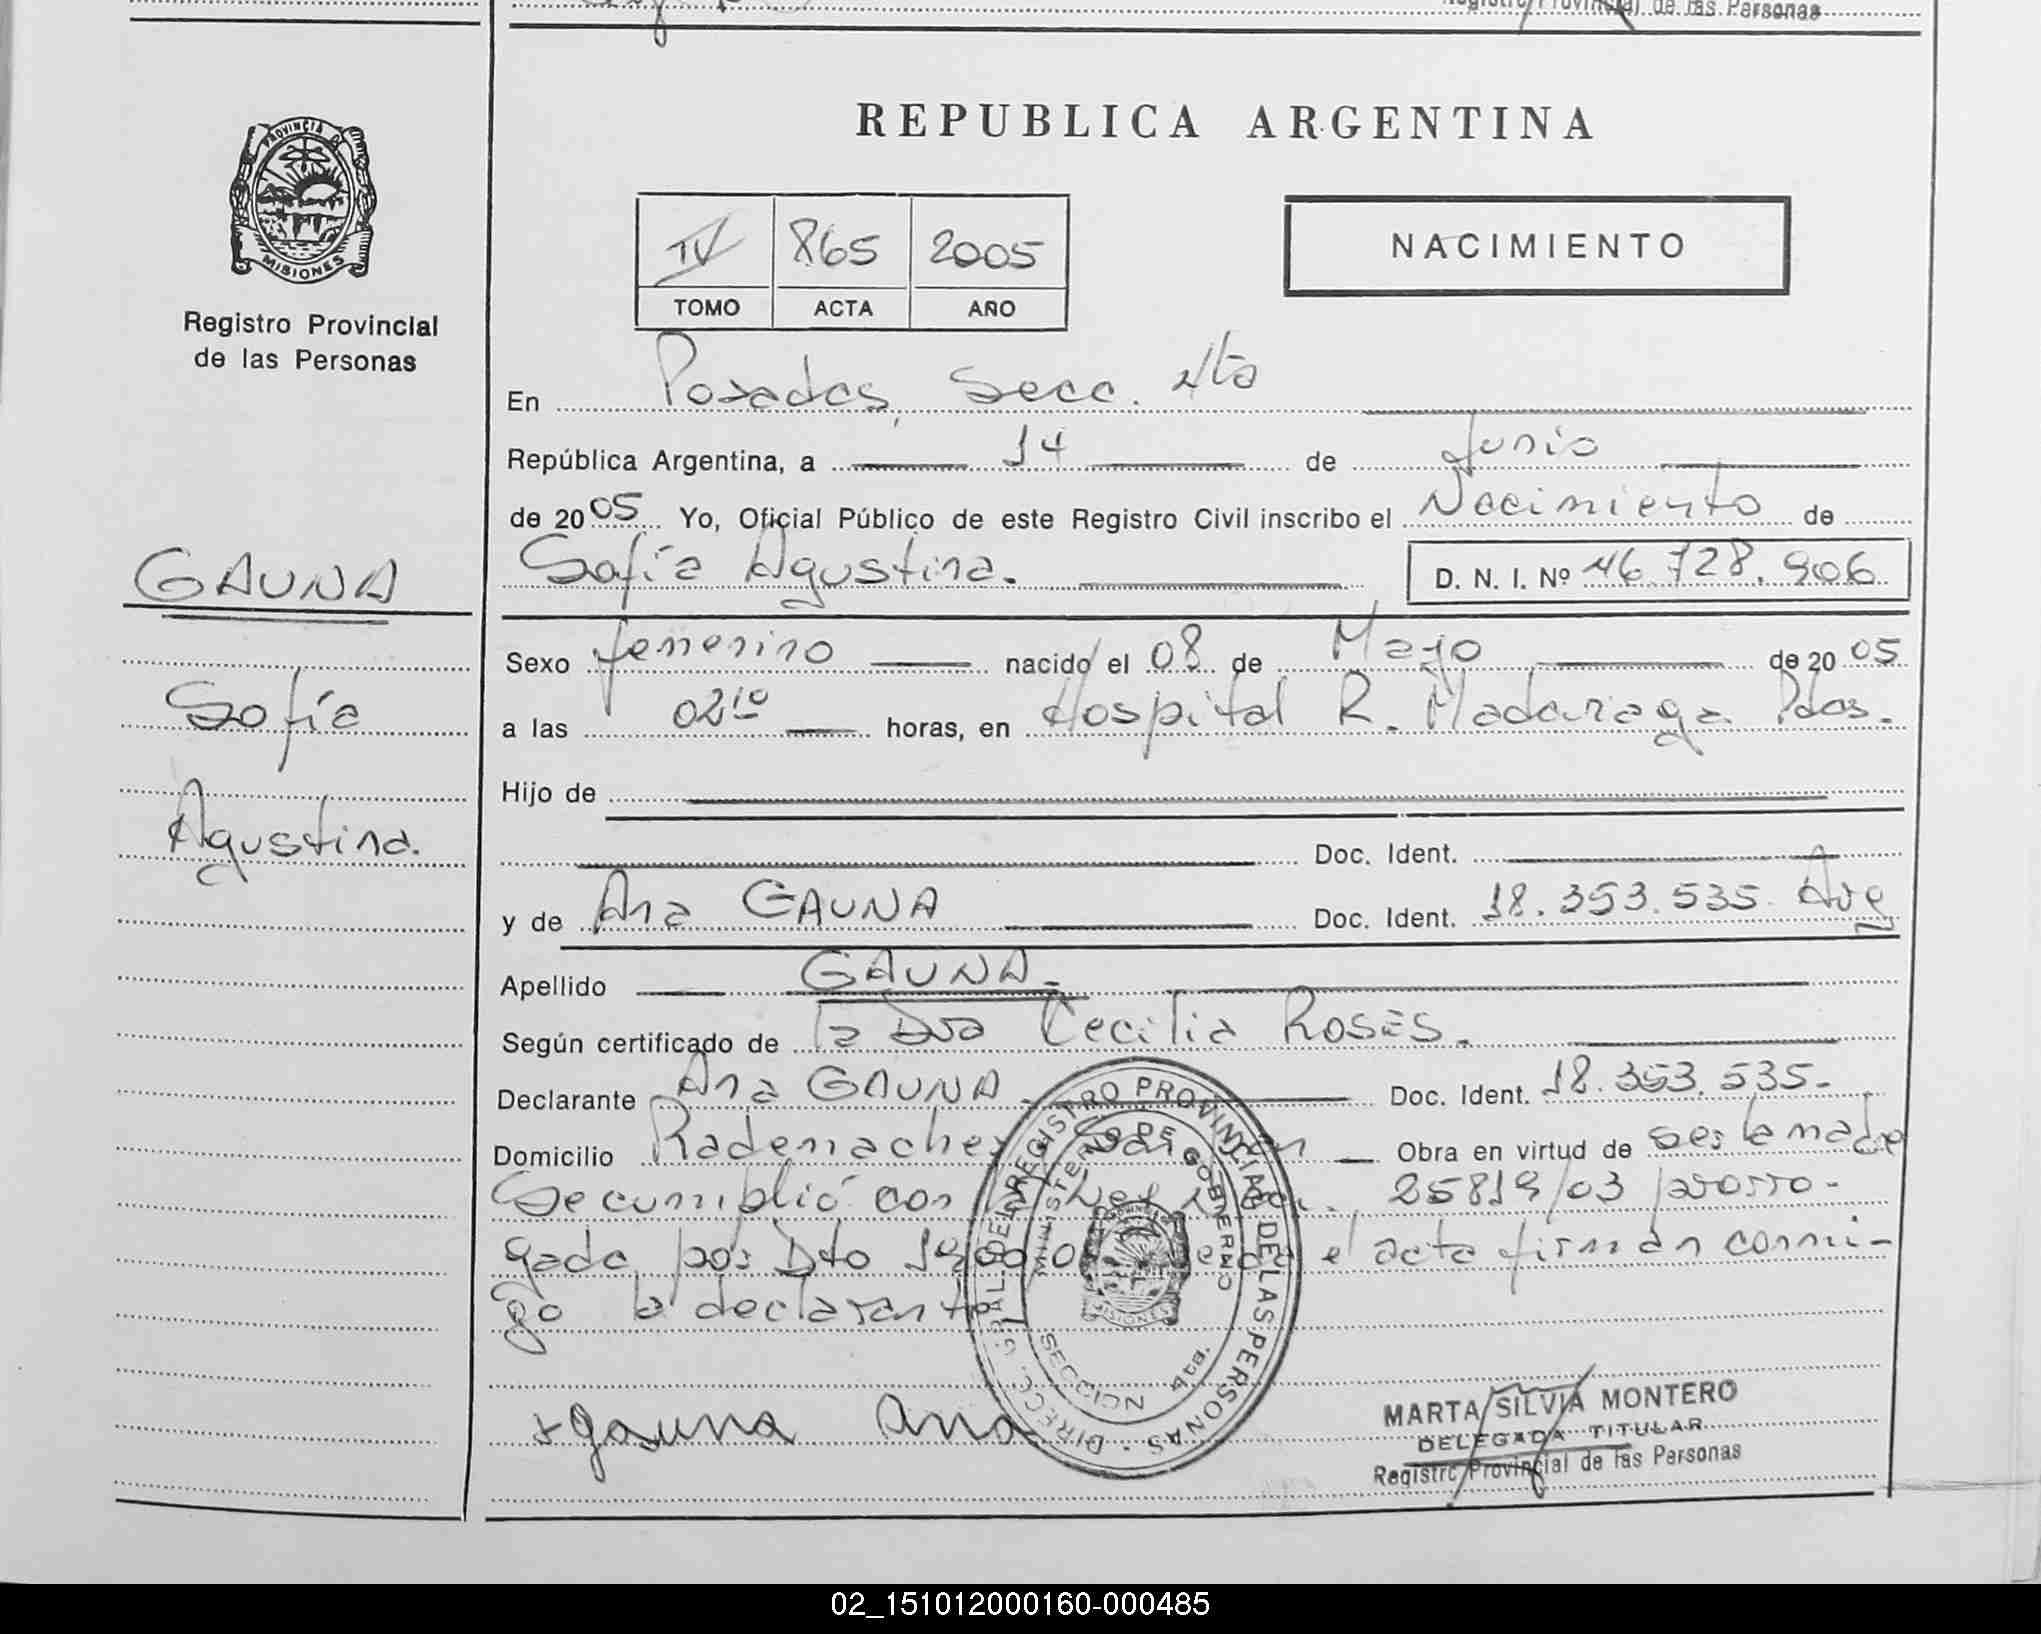 Registro Provincial de las Personas
REPUBLICA ARGENTINA
PROVINCIA DE
MISIONES
Registro Provincial
de las Personas
IV 865 2005
TOMO ACTA AÑO
NACIMIENTO
En Posadas, Secc. 4ta
República Argentina, a 14 de Junio
de 2005 Yo, Oficial Público de este Registro Civil inscribo el Nacimiento de
Sofía Agustina. D. N. I. Nº 46.728.906
GAUNA
Sofía
Agustina.
Sexo femenino nacido el 08 de Mayo de 2005
a las 02:10 horas, en Hospital R. Madariaga Pdas.
Hijo de
Doc. Ident.
y de Ana GAUNA Doc. Ident. 18.353.535. Arg
Apellido GAUNA.
Según certificado de la Dra Cecilia Roses.
Declarante Ana GAUNA Doc. Ident. 18.353.535.
Domicilio Rademacher Obra en virtud de ser la madre
Se cumplió con la Ley 25819/03 prorro-
gada por Dto el acta firman conmi-
go la declarante
DIRECC. GRAL. DEL REGISTRO PROVINCIAL DE LAS PERSONAS
MINISTERIO DE GOBIERNO
MISIONES
SECCION 4ta.
x gauna Ana
MARTA SILVIA MONTERO
DELEGADA TITULAR
Registro Provincial de las Personas
02_151012000160-000485